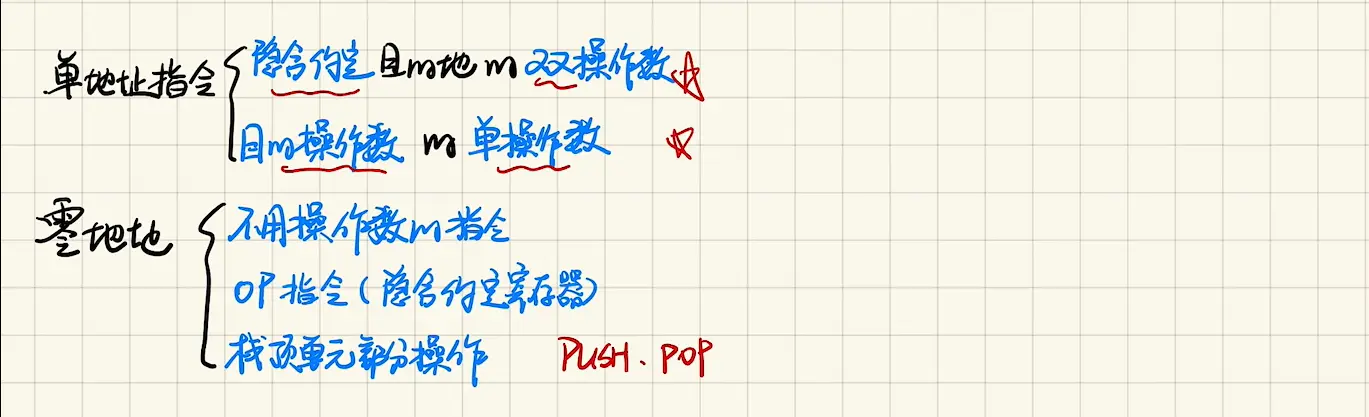 单地址指令 隐含约定目的地的双操作数
目的操作数的单操作数
零地地 不用操作数的指令
OP指令(隐含约定寄存器)
栈顶单元部分操作 PUSH. POP